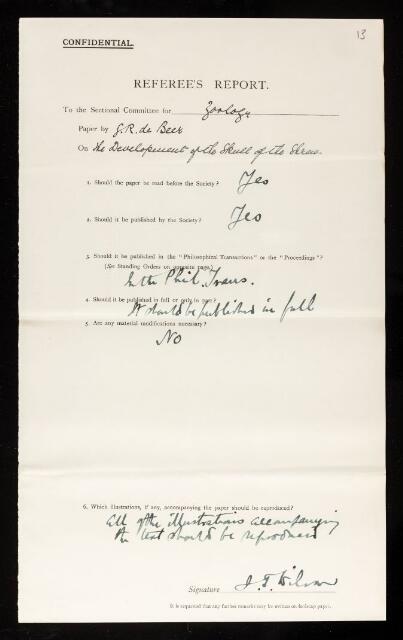 13
CONFIDENTIAL.
REFEREE'S REPORT.
To the Sectional Committee for Zoology
Paper by G. R. de Beer
On the Development of the Skull of the Shrew.
1. Should the paper be read before the Society? Yes
2. Should it be published by the Society? Yes
3. Should it be published in the "Philosophical Transactions" or the "Proceedings"?
(See Standing Orders on opposite page.)
In the Phil. Trans.
4. Should it be published in full or only in part?
It should be published in full
5. Are any material modifications necessary?
No
6. Which illustrations, if any, accompanying the paper should be reproduced?
All of the illustrations accompanying
the text should be reproduced
Signature J. T. Wilson
It is requested that any further remarks may be written on foolscap paper.